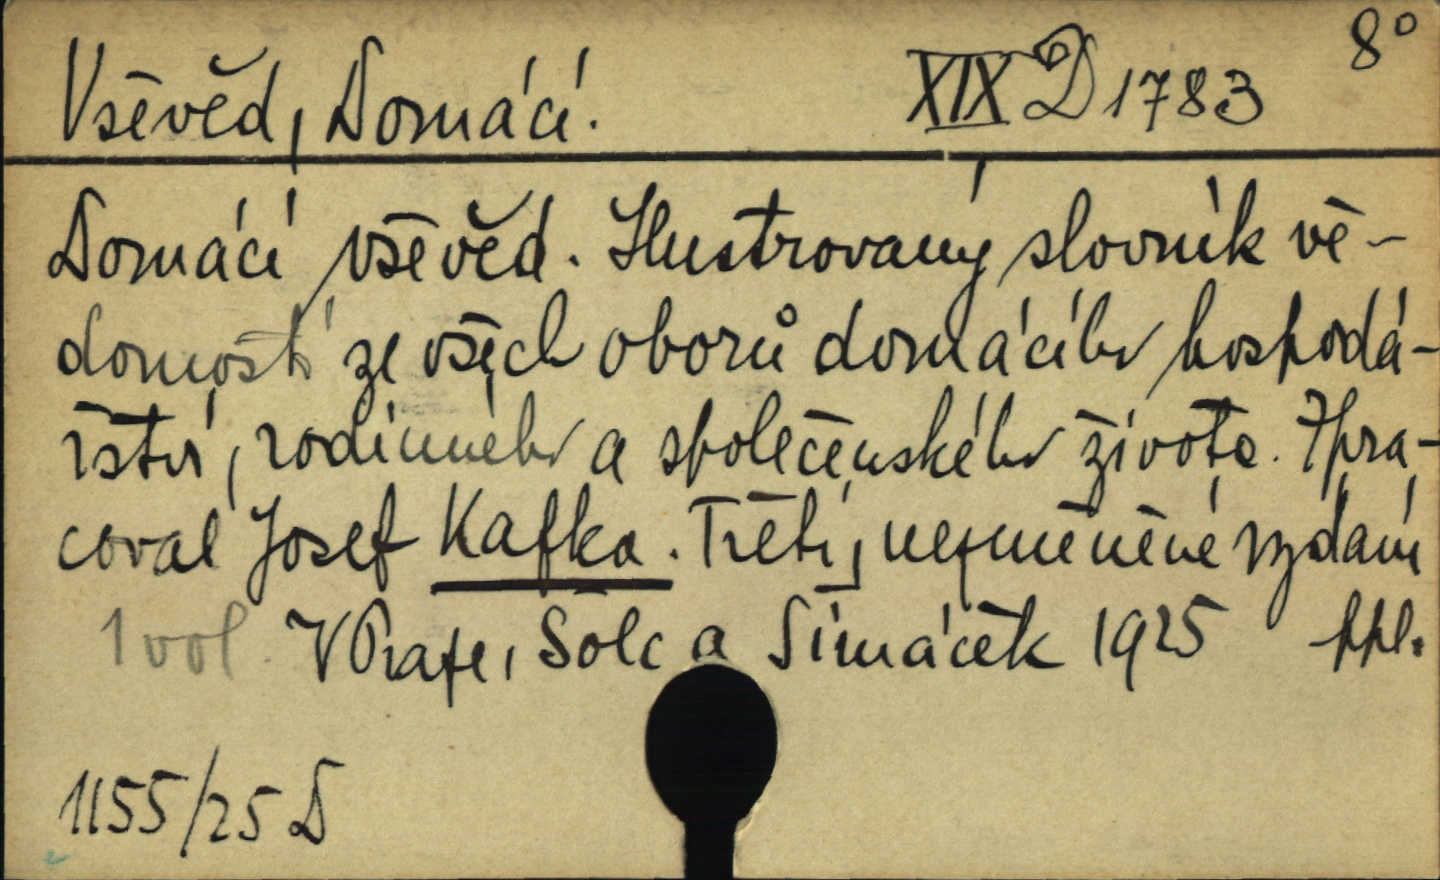 Vševěd, Domácí. XIX D 1783 8°
Domácí vševěd. Ilustrovaný slovník vě-
domostí ze všech oborů domácího hospodá-
řství, rodinného a společenského života. Zpra-
coval Josef Kafka. Třetí, nezměněné vydání
1 vol. V Praze, Šolc a Šimáček 1925 ppl.
1155/25 D